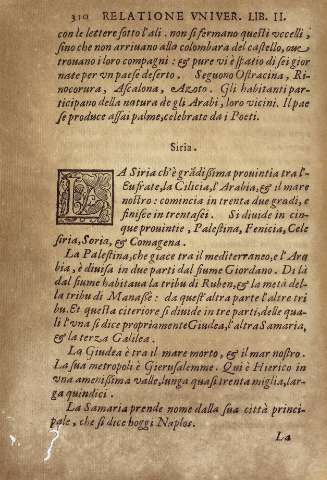 310 RELATIONE VNIVER. LIB. II.
con le lettere sotto l'ali. non si fermano questi vccelli,
sino che non arriuano alla colombara del castello, oue
trouano i loro compagni: & pure vi è spatio di sei gior
nate per vn paese deserto. Seguono Ostracina, Ri-
nocorura, Ascalona, e Azoto. Gli habitanti par-
ticipano della natura de gli Arabi, loro vicini. Il pae
se produce assai palme, celebrate da i Poeti.
Siria.
LA Siria ch'è grādissima prouintia tra l'-
Eufrate, la Cilicia, l'Arabia, & il mare
nostro: comincia in trenta due gradi, e
finisce in trentasei. Si diuide in cin-
que prouintie, Palestina, Fenicia, Cele
siria, Soria, & Comagena.
La Palestina, che giace tra il mediterraneo, e l'Ara
bia, è diuisa in due parti dal fiume Giordano. Di là
dal fiume habitaua la tribu di Ruben, & la metà del-
la tribu di Manasse: da quest'altra parte l'altre tri
bu. Et questa citeriore si diuide in tre parti, delle qua-
li l'vna si dice propriamente Giudea, l'altra Samaria,
& la terza Galilea.
La Giudea è tra il mare morto, & il mar nostro.
La sua metropoli è Gierusalemme. Qui è Hierico in
vna amenissima valle, lunga quasi trenta miglia, lar-
ga quindici.
La Samaria prende nome dalla sua città princi-
pale, che si dice hoggi Naplos.
La